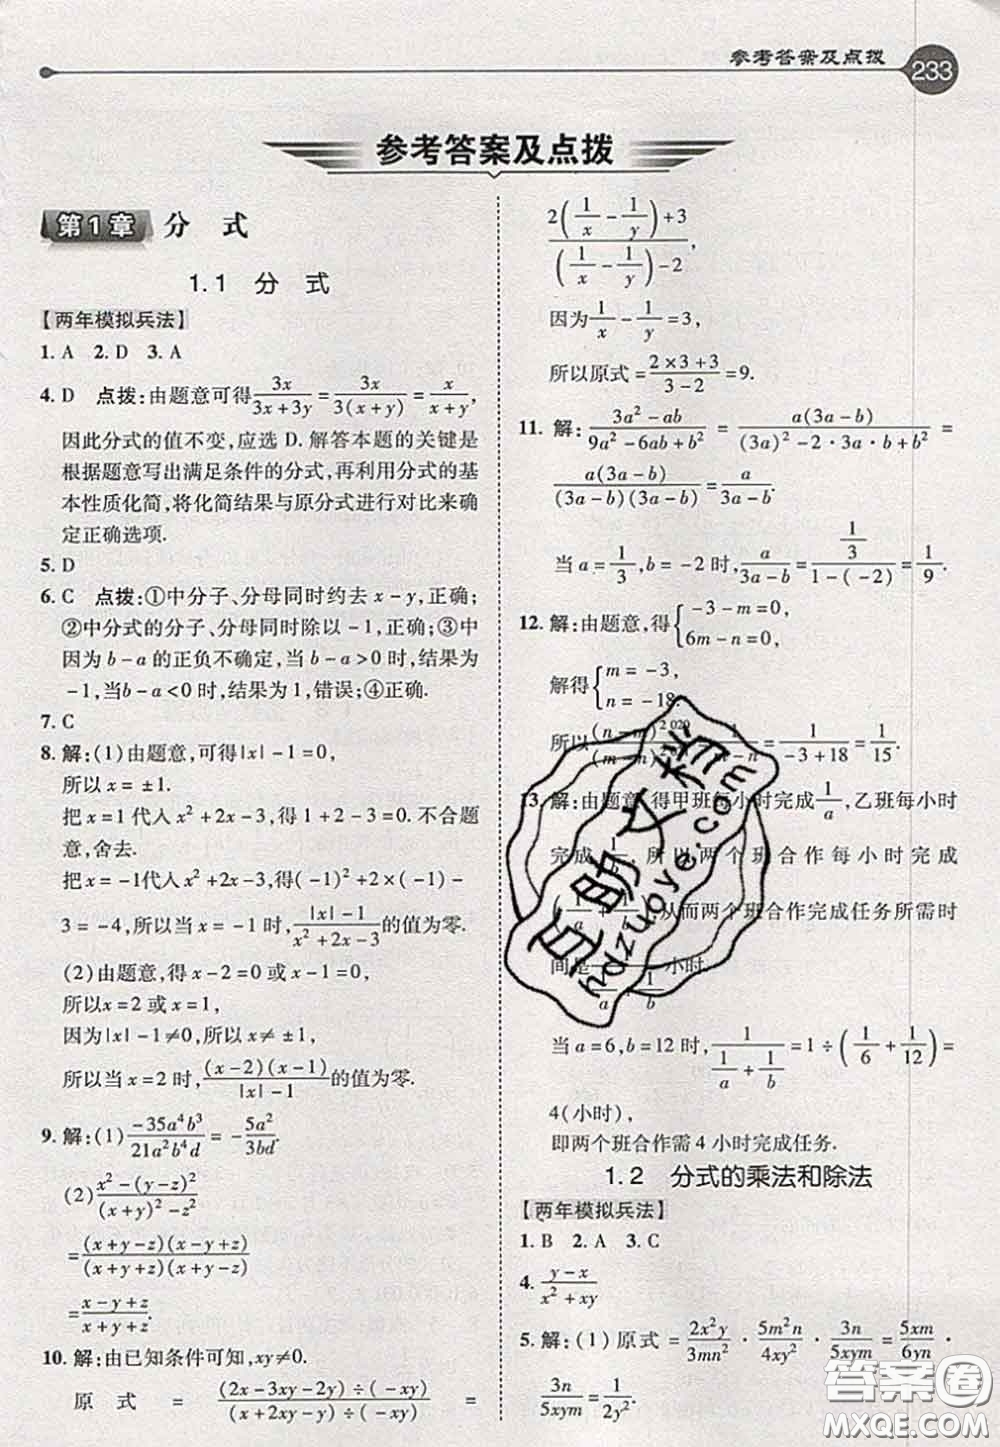 参考答案及点拨
233
参考答案及点拨
第1章 分 式
1.1 分 式
【两年模拟兵法】
1. A 2. D 3. A
4. D 点拨:由题意可得3x/(3x+3y)=3x/(3(x+y))=x/(x+y),
因此分式的值不变,应选 D. 解答本题的关键是
根据题意写出满足条件的分式,再利用分式的基
本性质化简,将化简结果与原分式进行对比来确
定正确选项.
5. D
6. C 点拨:①中分子、分母同时约去 x-y,正确;
②中分式的分子、分母同时除以-1,正确;③中
因为 b-a 的正负不确定,当 b-a>0 时,结果为
-1,当b-a<0 时,结果为1,错误;④正确.
7. C
8. 解:(1)由题意,可得|x|-1=0,
所以 x=±1.
把 x=1代入 x²+2x-3,得1+2-3=0,不合题
意,舍去.
把 x=-1代入 x²+2x-3,得(-1)²+2×(-1)-
3=-4,所以当 x=-1时,(|x|-1)/(x²+2x-3)的值为零.
(2)由题意,得 x-2=0或 x-1=0,
所以x=2 或 x=1,
因为|x|-1≠0,所以x≠±1,
所以当 x=2 时,(x-2)(x-1)/(|x|-1)的值为零.
9. 解:(1)-35a⁴b³/(21a²b⁴d)=-5a²/(3bd).
(2)(x²-(y-z)²)/((x+y)²-z²)
=(x+y-z)(x-y+z)/((x+y+z)(x+y-z))
=(x-y+z)/(x+y+z).
10. 解:由已知条件可知,xy≠0.
原 式 = (2x-3xy-2y)÷(-xy)/((x+2xy-y)÷(-xy)) =
(2(1/x-1/y)+3)/((1/x-1/y)-2)
因为1/x-1/y=3,
所以原式=(2×3+3)/(3-2)=9.
11. 解:(3a²-ab)/(9a²-6ab+b²)=a(3a-b)/((3a)²-2·3a·b+b²)=
a(3a-b)/((3a-b)(3a-b))=a/(3a-b).
当 a=1/3,b=-2 时,a/(3a-b)=(1/3)/(1-(-2))=1/9.
12. 解:由题意,得{-3-m=0, 6m-n=0,
解得{m=-3, n=-18.
所以 =1/(-3+18)=1/15.
13. 解:由题意,得甲班每小时完成1/a,乙班每小时
完成1/b,所以两个班合作每小时完成
1/a+1/b,从而两个班合作完成任务所需时
间是1/(1/a+1/b)小时.
当 a=6,b=12 时,1/(1/a+1/b)=1÷(1/6+1/12)=
4(小时),
即两个班合作需 4 小时完成任务.
1.2 分式的乘法和除法
【两年模拟兵法】
1. B 2. A 3. C
4. (y-x)/(x²+xy)
5. 解:(1)原式=2x²y/(3mn²)·5m²n/(4xy²)·3n/(5xym)=5xm/(6yn)·
3n/(5xym)=1/(2y²).
百助文档
ndzuobye.com
答案圈
MXQE.COM